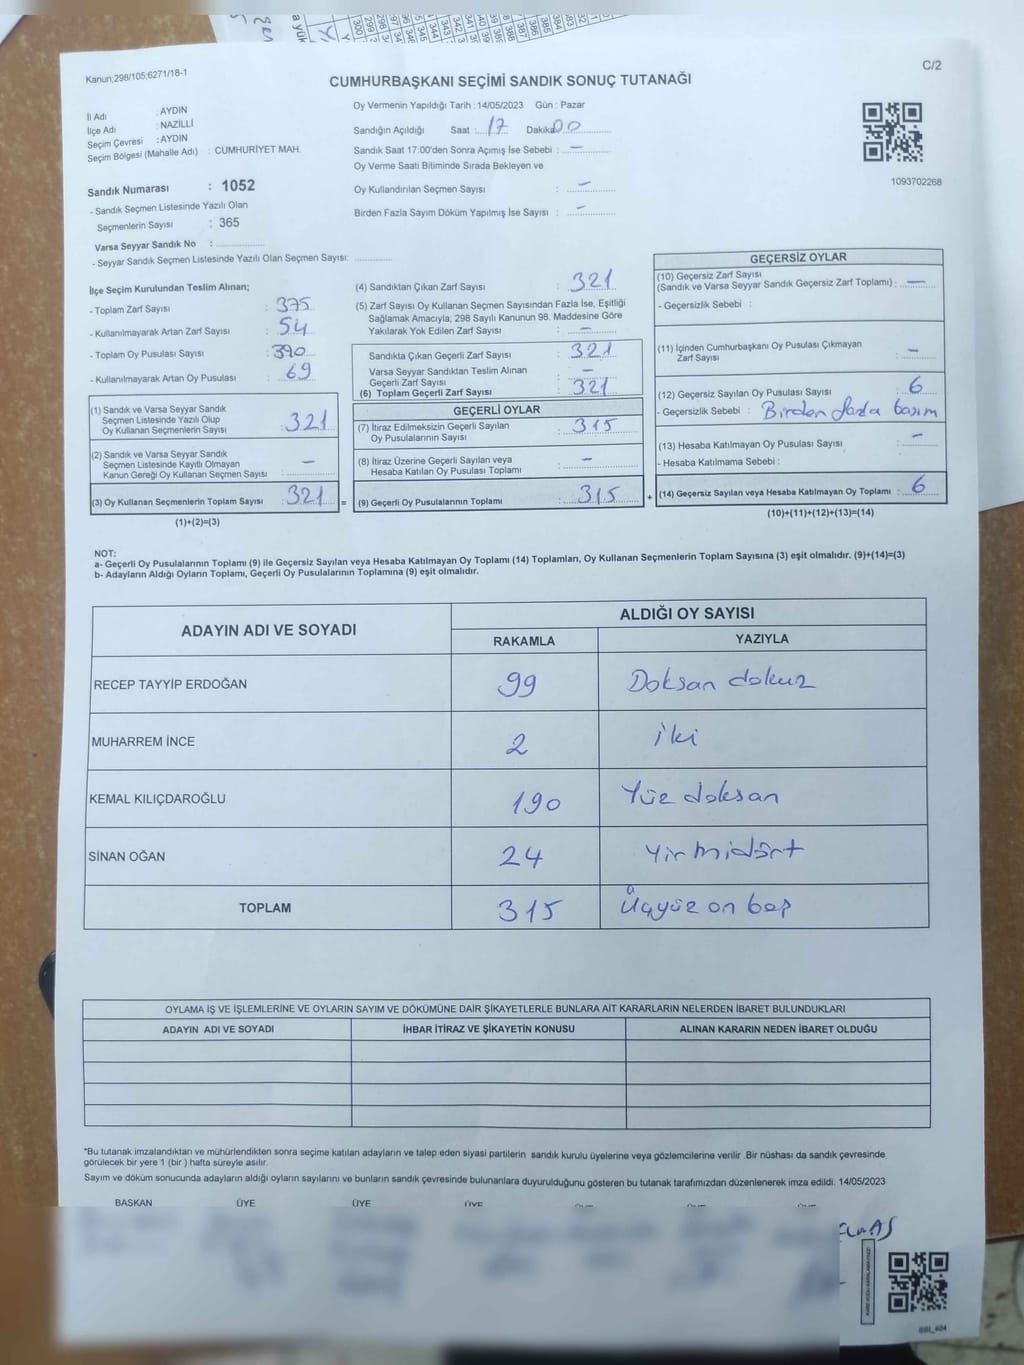 Kanun;298/105;6271/18-1
C/2
CUMHURBAŞKANI SEÇİMİ SANDIK SONUÇ TUTANAĞI
İl Adı : AYDIN
İlçe Adı : NAZİLLİ
Seçim Çevresi : AYDIN
Seçim Bölgesi (Mahalle Adı) : CUMHURİYET MAH.
Sandık Numarası : 1052
- Sandık Seçmen Listesinde Yazılı Olan
Seçmenlerin Sayısı : 365
Varsa Seyyar Sandık No :
- Seyyar Sandık Seçmen Listesinde Yazılı Olan Seçmen Sayısı:
Oy Vermenin Yapıldığı Tarih : 14/05/2023 Gün : Pazar
Sandığın Açıldığı Saat : 17 Dakika 00
Sandık Saat 17:00'den Sonra Açımış İse Sebebi : —
Oy Verme Saati Bitiminde Sırada Bekleyen ve
Oy Kullandırılan Seçmen Sayısı : —
Birden Fazla Sayım Döküm Yapılmış İse Sayısı : —
1093702268
İlçe Seçim Kurulundan Teslim Alınan;
- Toplam Zarf Sayısı : 375
- Kullanılmayarak Artan Zarf Sayısı : 54
- Toplam Oy Pusulası Sayısı : 390
- Kullanılmayarak Artan Oy Pusulası : 69
(1) Sandık ve Varsa Seyyar Sandık
Seçmen Listesinde Yazılı Olup
Oy Kullanan Seçmenlerin Sayısı : 321
(2) Sandık ve Varsa Seyyar Sandık
Seçmen Listesinde Kayıtlı Olmayan
Kanun Gereği Oy Kullanan Seçmen Sayısı : —
(3) Oy Kullanan Seçmenlerin Toplam Sayısı : 321 =
(1)+(2)=(3)
(4) Sandıktan Çıkan Zarf Sayısı : 321
(5) Zarf Sayısı Oy Kullanan Seçmen Sayısından Fazla İse, Eşitliği
Sağlamak Amacıyla; 298 Sayılı Kanunun 98. Maddesine Göre
Yakılarak Yok Edilen Zarf Sayısı : —
Sandıkta Çıkan Geçerli Zarf Sayısı : 321
Varsa Seyyar Sandıktan Teslim Alınan
Geçerli Zarf Sayısı : —
(6) Toplam Geçerli Zarf Sayısı : 321
GEÇERLİ OYLAR
(7) İtiraz Edilmeksizin Geçerli Sayılan
Oy Pusulalarının Sayısı : 315
(8) İtiraz Üzerine Geçerli Sayılan veya
Hesaba Katılan Oy Pusulası Toplamı : —
(9) Geçerli Oy Pusulalarının Toplamı : 315 +
GEÇERSİZ OYLAR
(10) Geçersiz Zarf Sayısı
(Sandık ve Varsa Seyyar Sandık Geçersiz Zarf Toplamı) : —
- Geçersizlik Sebebi :
(11) İçinden Cumhurbaşkanı Oy Pusulası Çıkmayan
Zarf Sayısı : —
(12) Geçersiz Sayılan Oy Pusulası Sayısı : 6
- Geçersizlik Sebebi : Birden fazla basım
(13) Hesaba Katılmayan Oy Pusulası Sayısı : —
- Hesaba Katılmama Sebebi :
(14) Geçersiz Sayılan veya Hesaba Katılmayan Oy Toplamı : 6
(10)+(11)+(12)+(13)=(14)
NOT:
a- Geçerli Oy Pusulalarının Toplamı (9) ile Geçersiz Sayılan veya Hesaba Katılmayan Oy Toplamı (14) Toplamları, Oy Kullanan Seçmenlerin Toplam Sayısına (3) eşit olmalıdır. (9)+(14)=(3)
b- Adayların Aldığı Oyların Toplamı, Geçerli Oy Pusulalarının Toplamına (9) eşit olmalıdır.
ADAYIN ADI VE SOYADI
ALDIĞI OY SAYISI
RAKAMLA YAZIYLA
RECEP TAYYİP ERDOĞAN 99 Doksan dokuz
MUHARREM İNCE 2 İki
KEMAL KILIÇDAROĞLU 190 Yüz doksan
SİNAN OĞAN 24 Yirmidört
TOPLAM 315 Üçyüz on beş
OYLAMA İŞ VE İŞLEMLERİNE VE OYLARIN SAYIM VE DÖKÜMÜNE DAİR ŞİKAYETLERLE BUNLARA AİT KARARLARIN NELERDEN İBARET BULUNDUKLARI
ADAYIN ADI VE SOYADI İHBAR İTİRAZ VE ŞİKAYETİN KONUSU ALINAN KARARIN NEDEN İBARET OLDUĞU
*Bu tutanak imzalandıktan ve mühürlendikten sonra seçime katılan adayların ve talep eden siyasi partilerin sandık kurulu üyelerine veya gözlemcilerine verilir .Bir nüshası da sandık çevresinde
görülecek bir yere 1 (bir ) hafta süreyle asılır.
Sayım ve döküm sonucunda adayların aldığı oyların sayılarını ve bunların sandık çevresinde bulunanlara duyurulduğunu gösteren bu tutanak tarafımızdan düzenlenerek imza edildi. 14/05/2023
BAŞKAN ÜYE ÜYE ÜYE